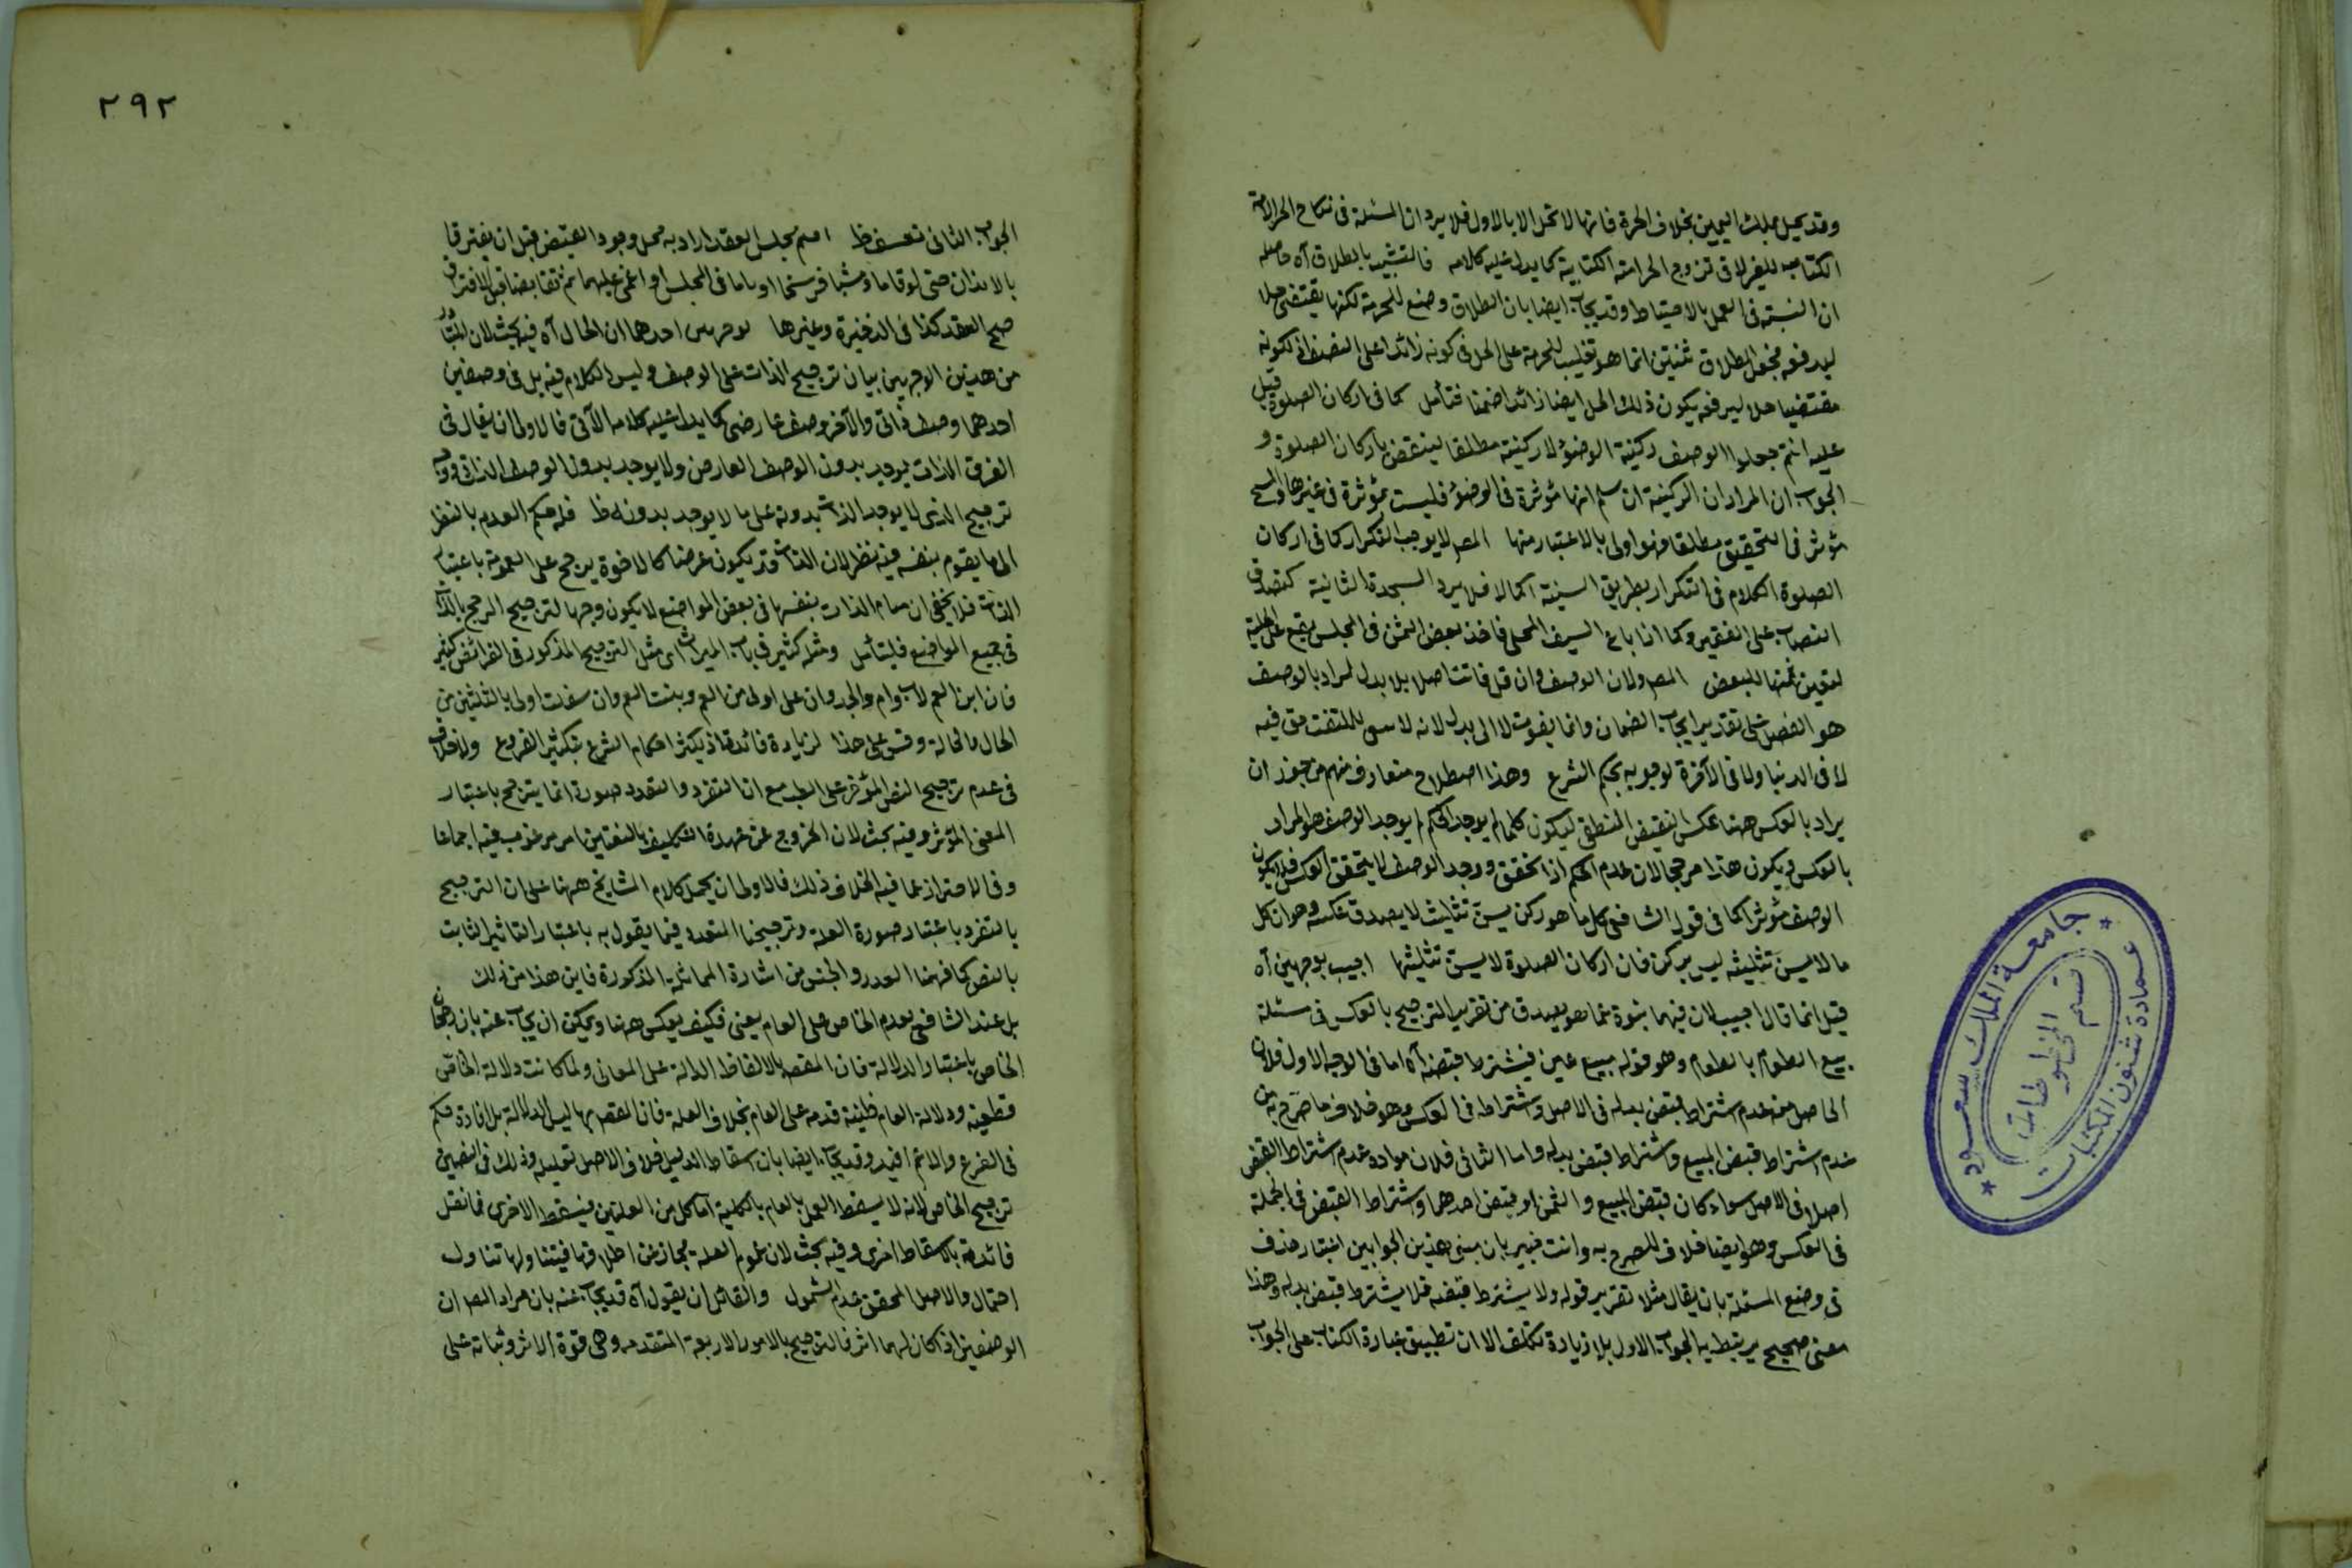 وقد يحل بملك اليمين بخلاف الحرة فانها لا تحل الا بالاول فلا يرد ان المسئلة في نكاح الحر الامة
الكتابية في تزوج الحر امة الكتابية كما يدل عليه كلامه فالتشبيه بالطلاق آه حاصله
ان الشبه في العمل بالاحتياط وقد يجاب ايضا بان الطلاق وضع للحرمة لكنها يقتضي حلا
ليرفعه فجعل الطلاق ثنتين انما هو تغليب للحرمة على الحل في كونه زائدا على النصف لكونه
مقتضيا حلا ليرفعه يكون ذلك الحل ايضا زائدا ضمنا فتأمل كما في اركان الصلوة قيل
عليه انتم جعلوا الوصف ركنية الوضوء لا ركنية مطلقا لينتقض باركان الصلوة و
الجواب ان المراد ان الركنية ان سلم انها مؤثرة في الوضوء فليست بمؤثرة في غيرها والمسح
مؤثر في التحقيق مطلقا فهو اولى بالاعتبار منها المص لا يوجب التكرار كما في اركان
الصلوة الكلام في التكرار بطريق السنية اكمالا فلا يرد السجدة الثانية
النصاب على الفقير وكما اذا باع السيف المحلى فاخذ بعض الثمن في المجلس يقع على الحلية
لتعين المص ولان الوصف وان قل فائت اصلا بلا بدل المراد بالوصف
هو الفضل على تقدير ايجاب الضمان وانما يفوت لا الى بدل لانه
لا في الدنيا ولا في الآخرة لوجوبه بحكم الشرع وهذا اصطلاح متعارف منهم من جوز ان
يراد بالعكس ههنا عكس النقيض المنطقي ليكون كلما لم يوجد الحكم لم يوجد الوصف هو المراد
بالعكس ويكون هذا مرجحا لان عدم الحكم اذا تحقق ووجد الوصف لا يتحقق العكس فلا يكون
الوصف مؤثرا كما في قول الشافعي كل ما هو ركن يسن تثليثه لا يصدق عكسه وهو ان كل
ما لا يسن تثليثه ليس بركن فان اركان الصلوة لا يسن تثليثها اجيب بوجهين آه
قيل انما قال اجيب لان فيهما نبوة عما هو بصدده من تقرير الترجيح بالعكس في مسئلة
بيع الطعام بالطعام وهو قوله مبيع عين فيشترط قبضه آه اما في الوجه الاول فلان
الحاصل منه عدم اشتراط قبض بدله في الاصل واشتراطه في العكس وهو خلاف ما صرح به من
عدم اشتراط قبض المبيع واشتراط قبض بدله واما الثاني فلان مراده عدم اشتراط القبض
اصلا في الاصل سواء كان قبض المبيع والثمن او قبض احدهما واشتراط القبض في الجملة
في العكس وهو ايضا خلاف المصرح به وانت خبير بان مبنى هذين الجوابين اختيار حذف
في وضع المسئلة بان يقال مثلا تقرير قوله ولا يشترط قبضه فلا يشترط قبض بدله وهذا
معنى صحيح يرتبط به الجواب الاول بلا زيادة تكلف الا ان تطبيق عبارة الكتاب على الجواب
٢٩٢
الجواب الثاني تعسف ظ اسم مجلس العقد اراد به محل وجود القبض قبل ان يفترقا
بالابدان حتى لو قاما ومشيا فرسخا او ناما في المجلس او اغمي عليهما ثم تقابضا قبل الافتراق
صح العقد كذا في الذخيرة وغيرها لوجهين احدهما ان الحال آه فيه بحث لان المتبادر
من هذين الوجهين بيان ترجيح الذات على الوصف وليس الكلام فيه بل في وصفين
احدهما وصف ذاتي والآخر وصف عارضي كما يدل عليه كلامه الآتي فالاولى ان يقال في
الفرق الذات يوجد بدون الوصف العارض ولا يوجد بدون الوصف الذاتي ووجه
ترجيح الذي لا يوجد الذات بدونه على ما لا يوجد بدونه ظ فله حكم العدم بالنظر
الى ما يقوم بنفسه فيه نظر لان الذات قد يكون عرضا كالاخوة يرجح على العمومة باعتبار
الذات فلا يخفى ان قيام الذات بنفسها في بعض المواضع لا يكون وجها لترجيح الرجح بالذات
في جميع المواضع فليتأمل ومثله كثير في باب الميراث اي مثل الترجيح المذكور في الفرائض كثير
فان ابن العم لاب وام والجد وان علا اولى من العم وبنت العم وان سفلت اولى بالثلثين من
الخال والخالة وقس على هذا لزيادة فائدة اذ يكثر احكام الشرع بتكثير الفروع ولا خلاف
في عدم ترجيح النص المؤخر على مع ان التفرد والتعدد صورة انما يترجح باعتبار
المعنى المؤثر وفيه بحث لان الخروج عن عهدة التكليف باليقين امر مرغوب فيه اجماعا
وفي الاحتراز عما فيه الخلاف ذلك فالاولى ان يحمل كلام المشايخ ههنا على ان الترجيح
بالتفرد باعتبار صورة العلة وترجيحنا المتعدد فيما يقول به باعتبار التاثير الثابت
بالنص كما فهمنا القدر والجنس من اشارة المماثلة المذكورة فاين هذا من ذلك
بل عند الشافعي يقدم الخاص على العام يعني فكيف يعكس ههنا ويمكن ان يجاب عنه بان رجحان
الخاص باعتبار الدلالة فان المقصد بالالفاظ الدالة على المعاني ولما كانت دلالة الخاص
قطعية ودلالة العام ظنية قدم على العام بخلاف العلة فان المقصد بها ليس الدلالة بل افادة حكم
في الفرع والاعم افيد وقد يجاب ايضا بان اسقاط الدليل خلاف الاصل تعليله وذلك في النصين
ترجيح الخاص لانه لا يسقط العمل بالعام بالكلية اما كل من العلتين فيسقط الاخرى فما نقل
فائدته باسقاط اخرى وفيه بحث لان عموم العلة مجاز عن اطلاقها فيتناولها تناول
احتمال والاصل المحقق عدم الشمول ولقائل ان يقول آه قد يجاب عنه بان مراد المص ان
الوصفين اذا كان لهما اثر فالترجيح بالامور الاربعة المتقدمة وهي قوة الاثر وثباته على
جامعة الملك سعود
عمادة شئون المكتبات
قسم المخطوطات